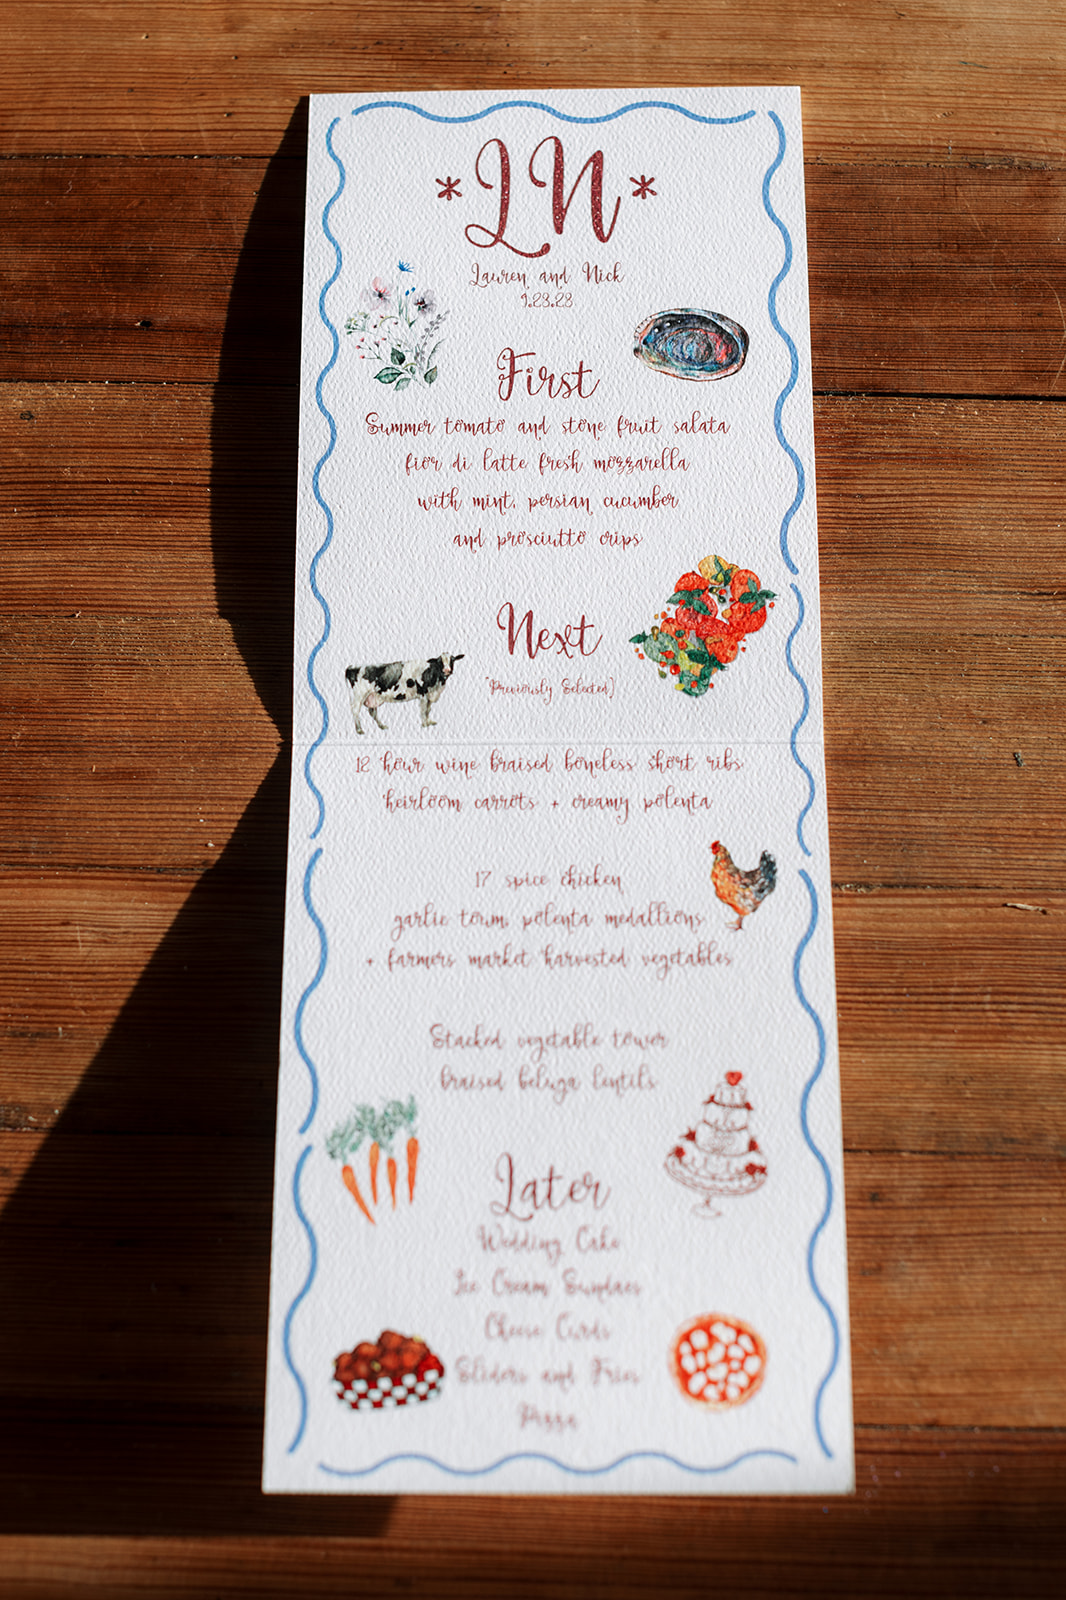 *LN*
Lauren and Nick
9.23.23
First
Summer tomato and stone fruit salata
fior di latte fresh mozzarella
with mint, persian cucumber
and prosciutto crips
Next
[Previously Selected]
12 hour wine braised boneless short ribs
heirloom carrots + creamy polenta
17 spice chicken
garlic toum, polenta medallions
+ farmers market harvested vegetables
Stacked vegetable tower
braised beluga lentils
Later
Wedding Cake
Ice Cream Sundaes
Cheese Curds
Sliders and Fries
Pizza